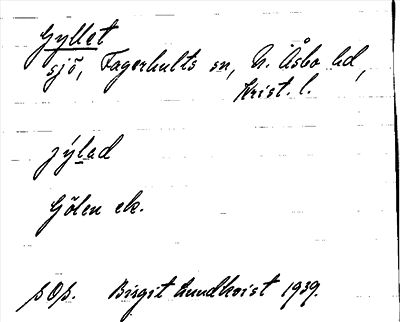 Gyllet
sjö, Fagerhults sn, N. Åsbo hd,
Krist. l.
jýlad
Gölen ek.
sOs. Birgit Lundkvist 1939.